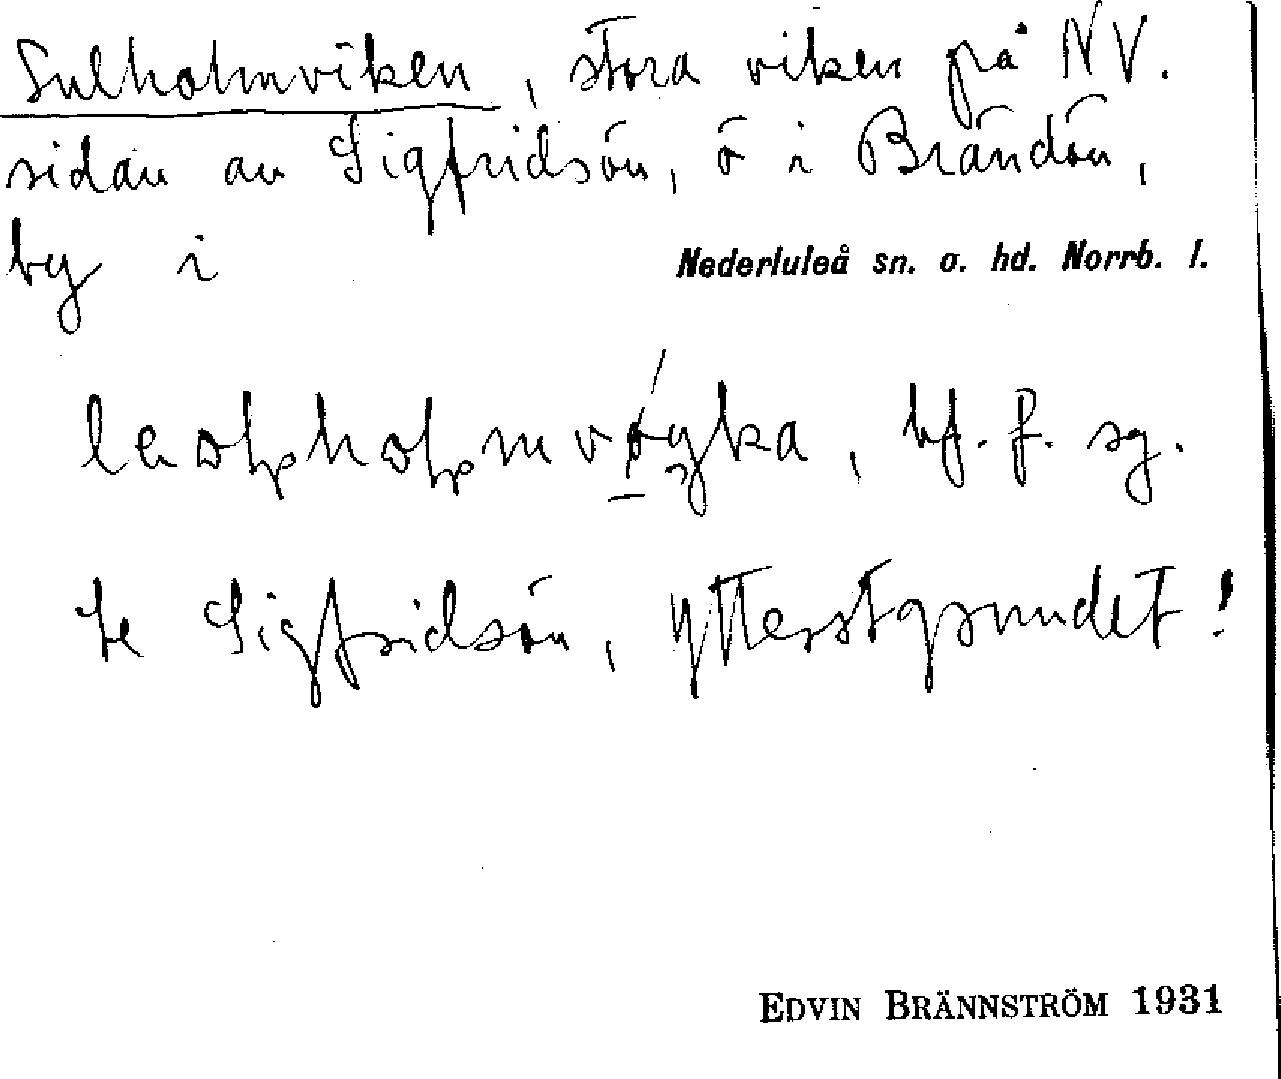 Sulholmviken, stora viken på NV.
sidan av Sigfridsön, ö i Brändön,
by i Nederluleå sn. o. hd. Norrb. l.
bf. f. sg.
se Sigfridsön, Ytterstgrundet!
EDVIN BRÄNNSTRÖM 1931